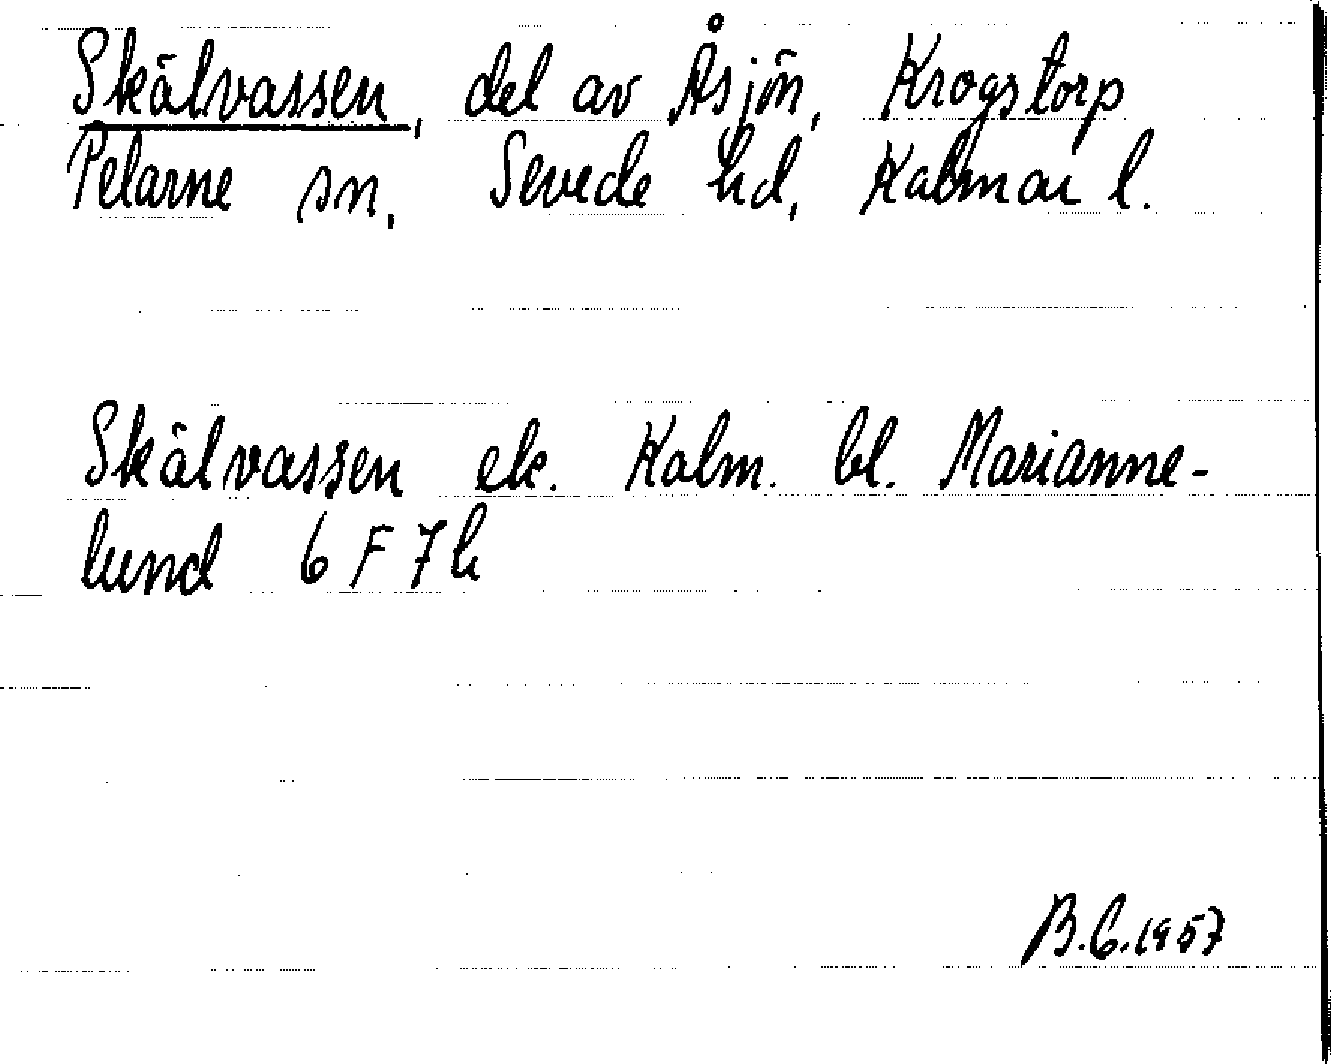 Skälvassen, del av Åsjön, Krogstorp
Pelarne sn, Sevede hd, Kalmar l.
Skälvassen ek. Kalm. bl. Marianne-
lund 6 F 7 h
B.G.1957